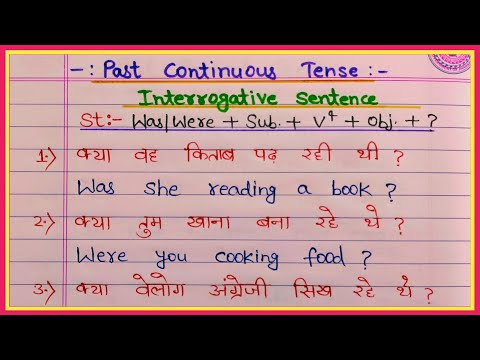 -: Past Continuous Tense :-
Interrogative Sentence
St:- Was/Were + Sub. + V⁴ + Obj. + ?
1.) क्या वह किताब पढ़ रही थी ?
Was She reading a book ?
2.) क्या तुम खाना बना रहे थे ?
Were you cooking food ?
3.) क्या वेलोग अंग्रेजी सिख रहे थे ?